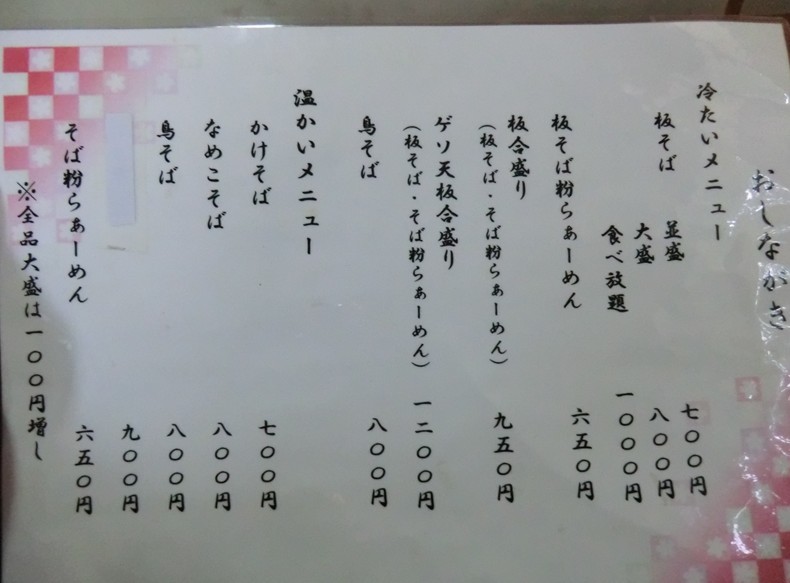 おしながき
冷たいメニュー
板そば 並盛 七〇〇円
大盛 八〇〇円
食べ放題 一〇〇〇円
板そば粉らぁーめん 六五〇円
板合盛り
(板そば・そば粉らぁーめん) 九五〇円
ゲソ天板合盛り
(板そば・そば粉らぁーめん) 一二〇〇円
鳥そば 八〇〇円
温かいメニュー
かけそば 七〇〇円
なめこそば 八〇〇円
鳥そば 八〇〇円
九〇〇円
そば粉らぁーめん 六五〇円
※全品大盛は一〇〇円増し